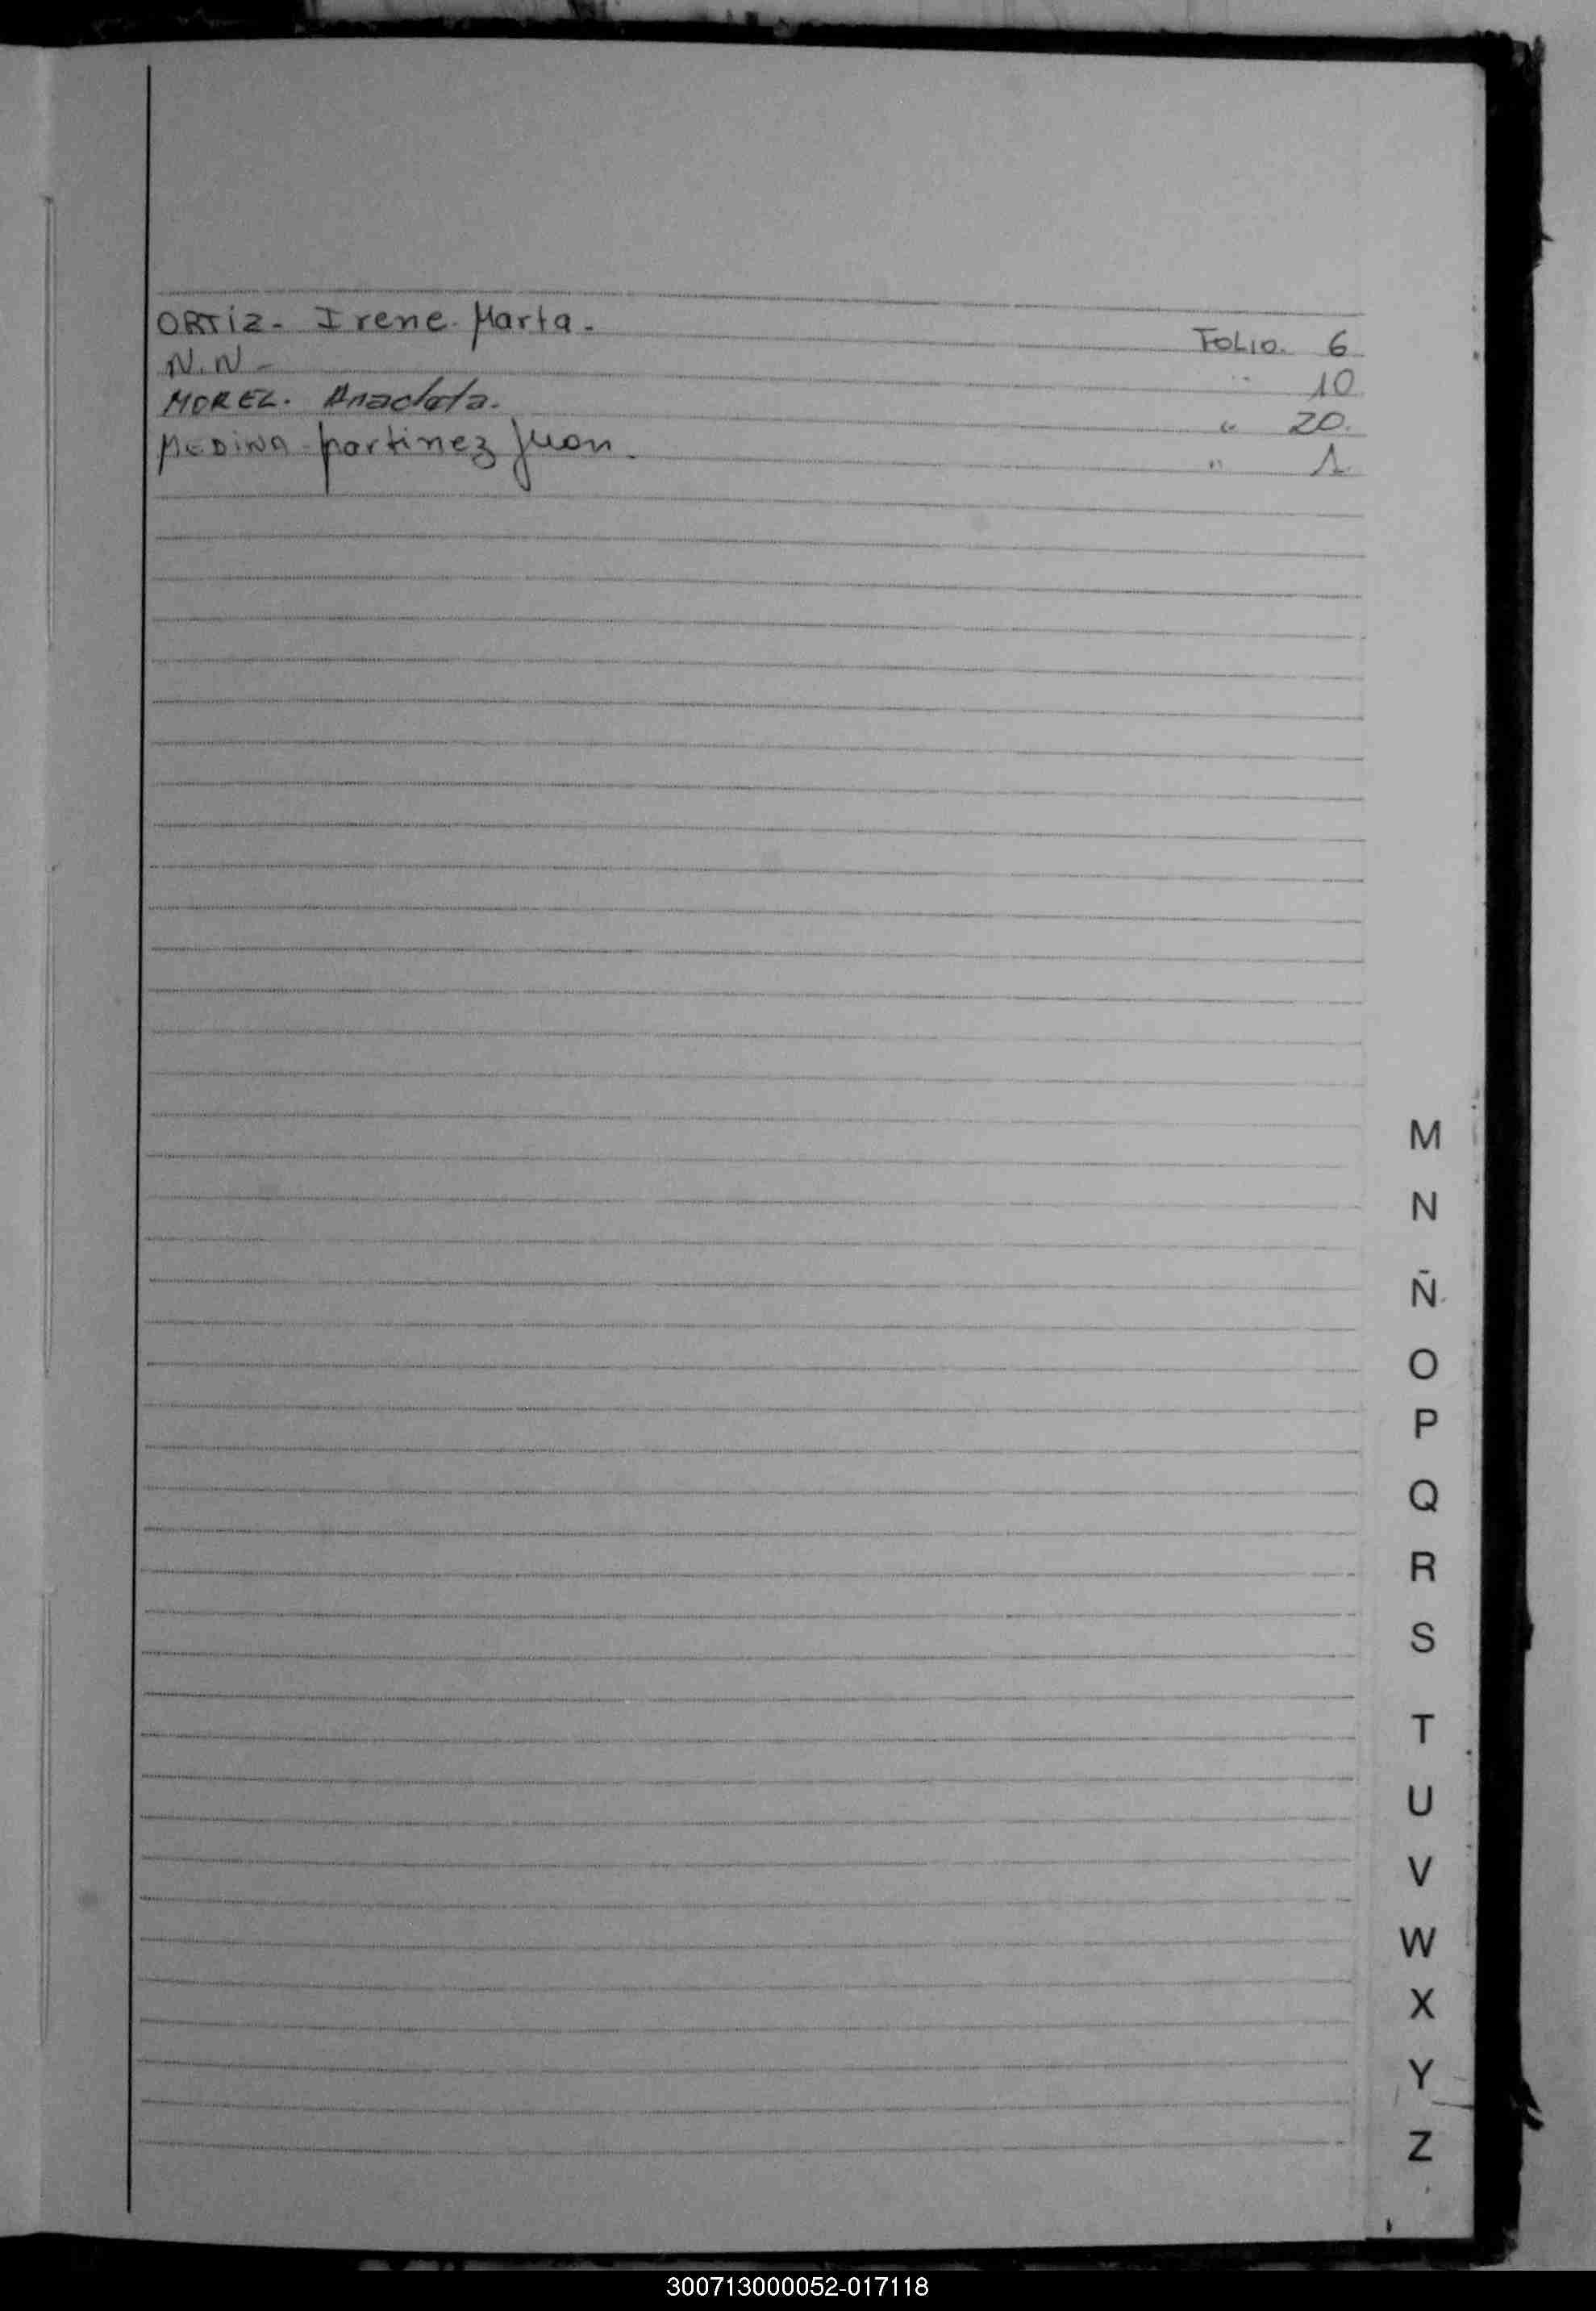 ORTiz- Irene. Marta. FOLIO. 6
N.N- " 10
MOREL. Anacleta. " 20.
MEDINA Martinez Juan. " 1
M
N
Ñ
O
P
Q
R
S
T
U
V
W
X
Y
Z
300713000052-017118